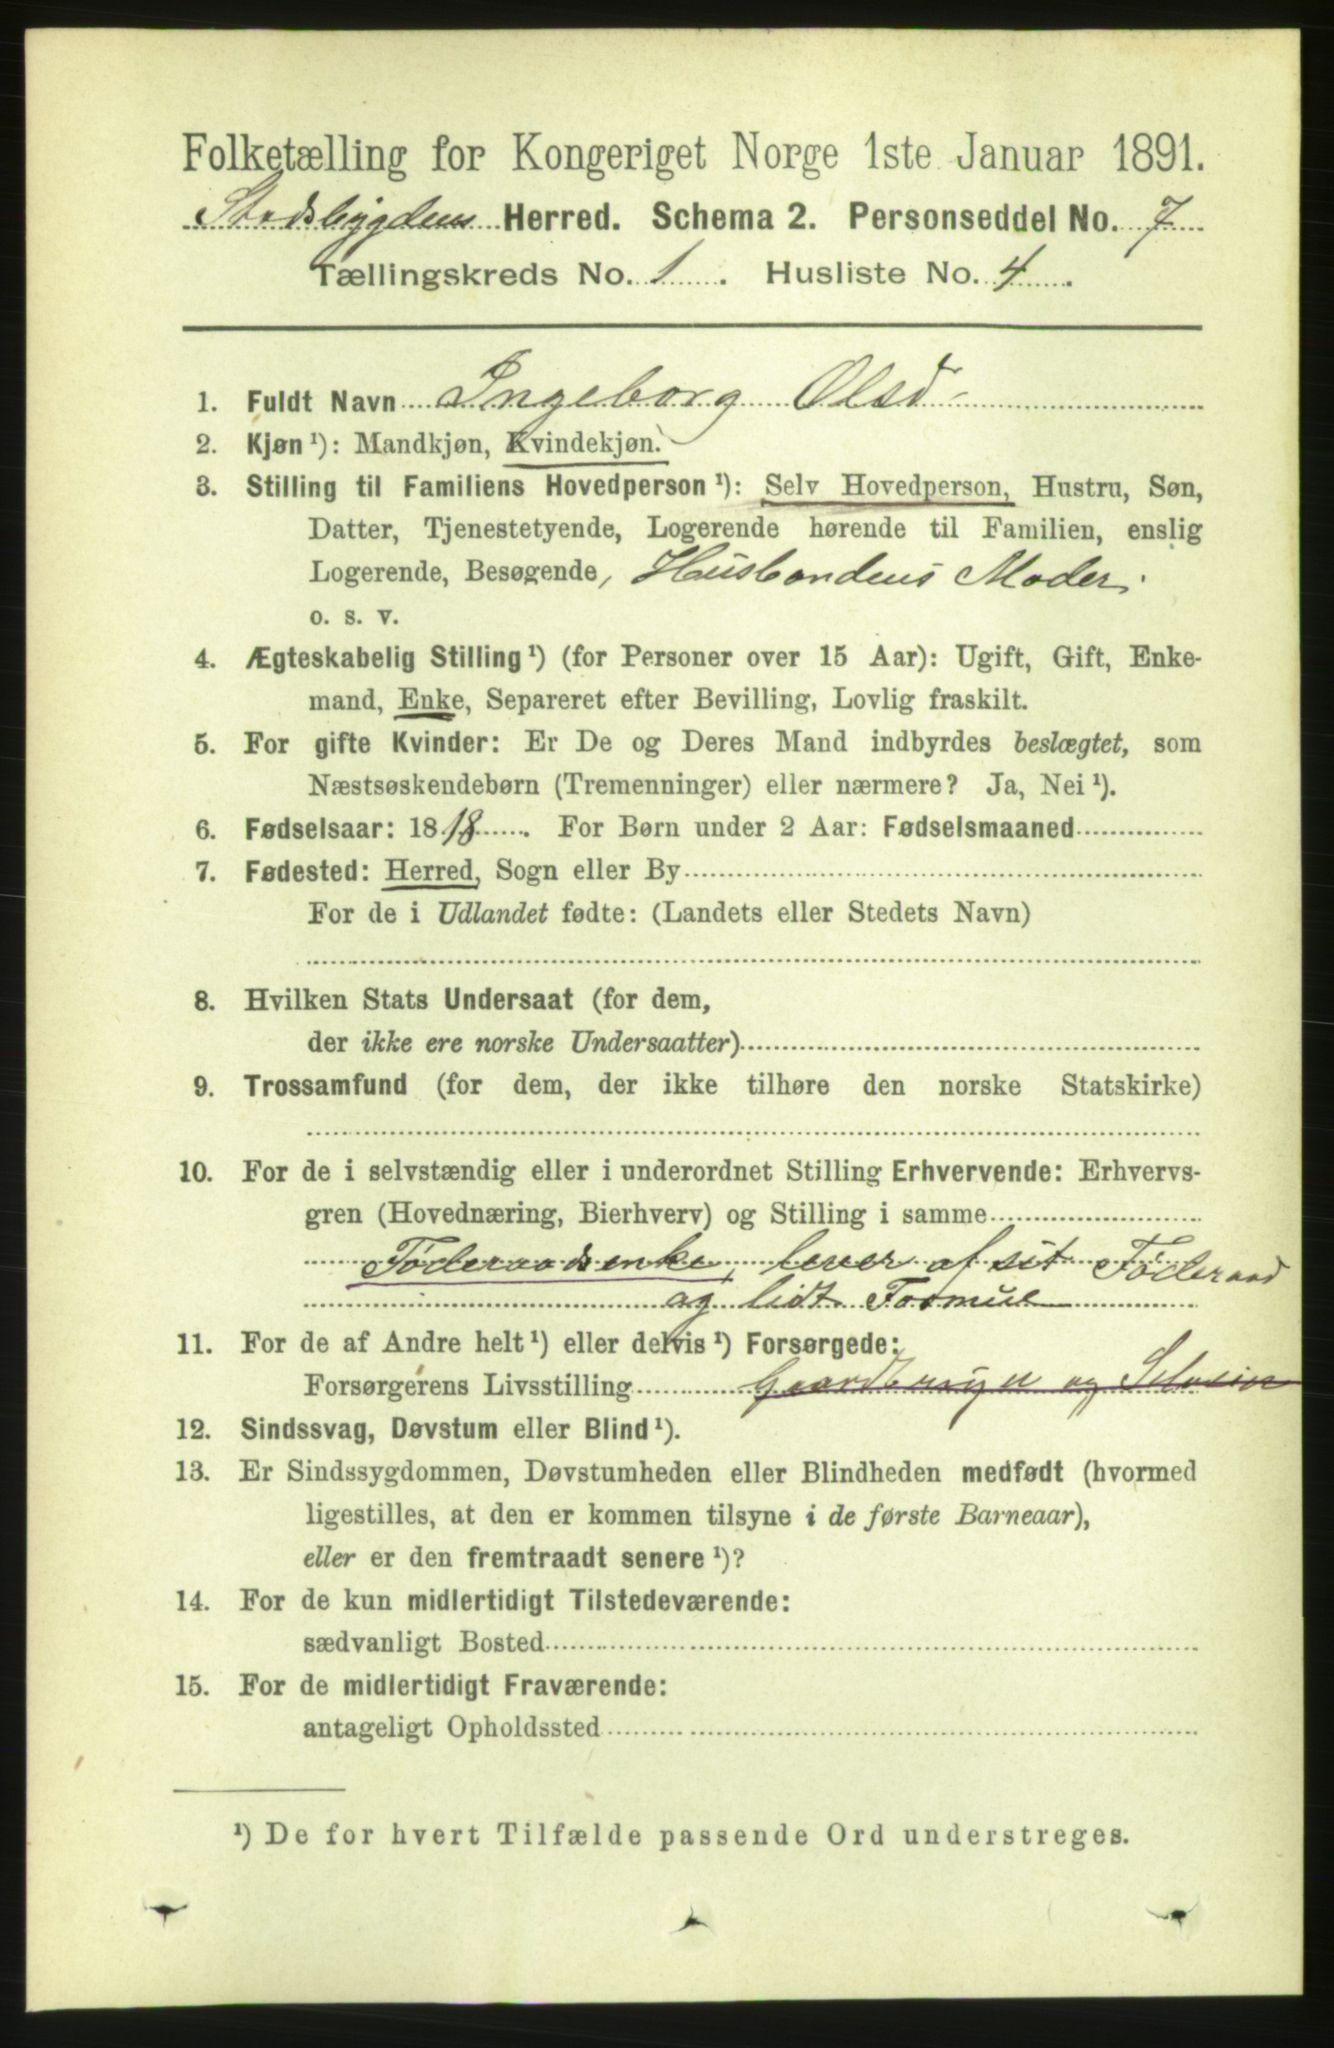 Folketælling for Kongeriget Norge 1ste Januar 1891.
Stadsbygdens Herred. Schema 2. Personseddel No. 7
Tællingskreds No. 1. Husliste No. 4.
1. Fuldt Navn Ingeborg Olsd
2. Kjøn¹): Mandkjøn, Kvindekjøn.
3. Stilling til Familiens Hovedperson¹): Selv Hovedperson, Hustru, Søn,
Datter, Tjenestetyende, Logerende hørende til Familien, enslig
Logerende, Besøgende, Husbondens Moder.
o. s. v.
4. Ægteskabelig Stilling¹) (for Personer over 15 Aar): Ugift, Gift, Enke-
mand, Enke, Separeret efter Bevilling, Lovlig fraskilt.
5. For gifte Kvinder: Er De og Deres Mand indbyrdes beslægtet, som
Næstsøskendebørn (Tremenninger) eller nærmere? Ja, Nei¹).
6. Fødselsaar: 1818. For Børn under 2 Aar: Fødselsmaaned
7. Fødested: Herred, Sogn eller By
For de i Udlandet fødte: (Landets eller Stedets Navn)
8. Hvilken Stats Undersaat (for dem,
der ikke ere norske Undersaatter)
9. Trossamfund (for dem, der ikke tilhøre den norske Statskirke)
10. For de i selvstændig eller i underordnet Stilling Erhvervende: Erhvervs-
gren (Hovednæring, Bierhverv) og Stilling i samme
Føderaadsenke, lever af sit Føderaad
og lidt Formue
11. For de af Andre helt¹) eller delvis¹) Forsørgede:
Forsørgerens Livsstilling Gaardbruger og Selveier
12. Sindssvag, Døvstum eller Blind¹).
13. Er Sindssygdommen, Døvstumheden eller Blindheden medfødt (hvormed
ligestilles, at den er kommen tilsyne i de første Barneaar),
eller er den fremtraadt senere¹)?
14. For de kun midlertidigt Tilstedeværende:
sædvanligt Bosted
15. For de midlertidigt Fraværende:
antageligt Opholdssted
¹) De for hvert Tilfælde passende Ord understreges.